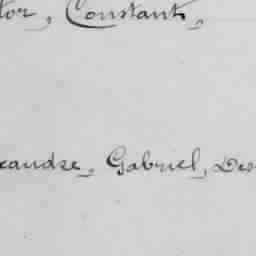 tor, Constant,
xandre, Gabriel, Des